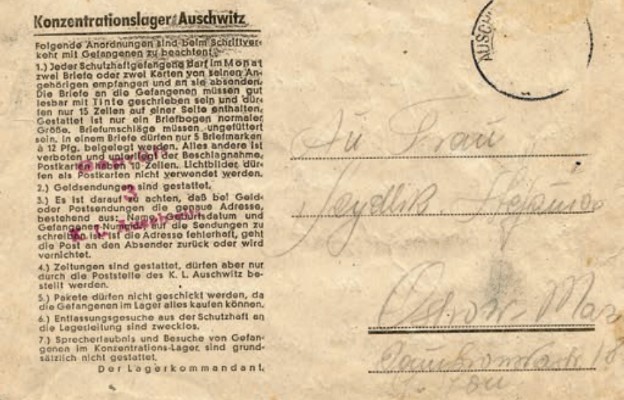 Konzentrationslager Auschwitz
Folgende Anordnungen sind beim Schriftver-
kehr mit Gefangenen zu beachten:
1.) Jeder Schutzhaftgefangene darf im Monat
zwei Briefe oder zwei Karten von seinen An-
gehörigen empfangen und an sie absenden.
Die Briefe an die Gefangenen müssen gut
lesbar mit Tinte geschrieben sein und dür-
fen nur 15 Zeilen auf einer Seite enthalten.
Gestattet ist nur ein Briefbogen normaler
Größe. Briefumschläge müssen ungefüttert
sein. In einem Briefe dürfen nur 5 Briefmarken
à 12 Pfg. beigelegt werden. Alles andere ist
verboten und unterliegt der Beschlagnahme.
Postkarten haben 10 Zeilen. Lichtbilder dür-
fen als Postkarten nicht verwendet werden.
2.) Geldsendungen sind gestattet.
3.) Es ist darauf zu achten, daß bei Geld-
oder Postsendungen die genaue Adresse,
bestehend aus: Name, Geburtsdatum und
Gefangenen-Nummer auf die Sendungen zu
schreiben ist. Ist die Adresse fehlerhaft, geht
die Post an den Absender zurück oder wird
vernichtet.
4.) Zeitungen sind gestattet, dürfen aber nur
durch die Poststelle des K. L. Auschwitz be-
stellt werden.
5.) Pakete dürfen nicht geschickt werden, da
die Gefangenen im Lager alles kaufen können.
6.) Entlassungsgesuche aus der Schutzhaft an
die Lagerleitung sind zwecklos.
7.) Sprecherlaubnis und Besuche von Gefan-
genen im Konzentrations-Lager sind grund-
sätzlich nicht gestattet.
Der Lagerkommandant.
3
AUSCHW
An Frau